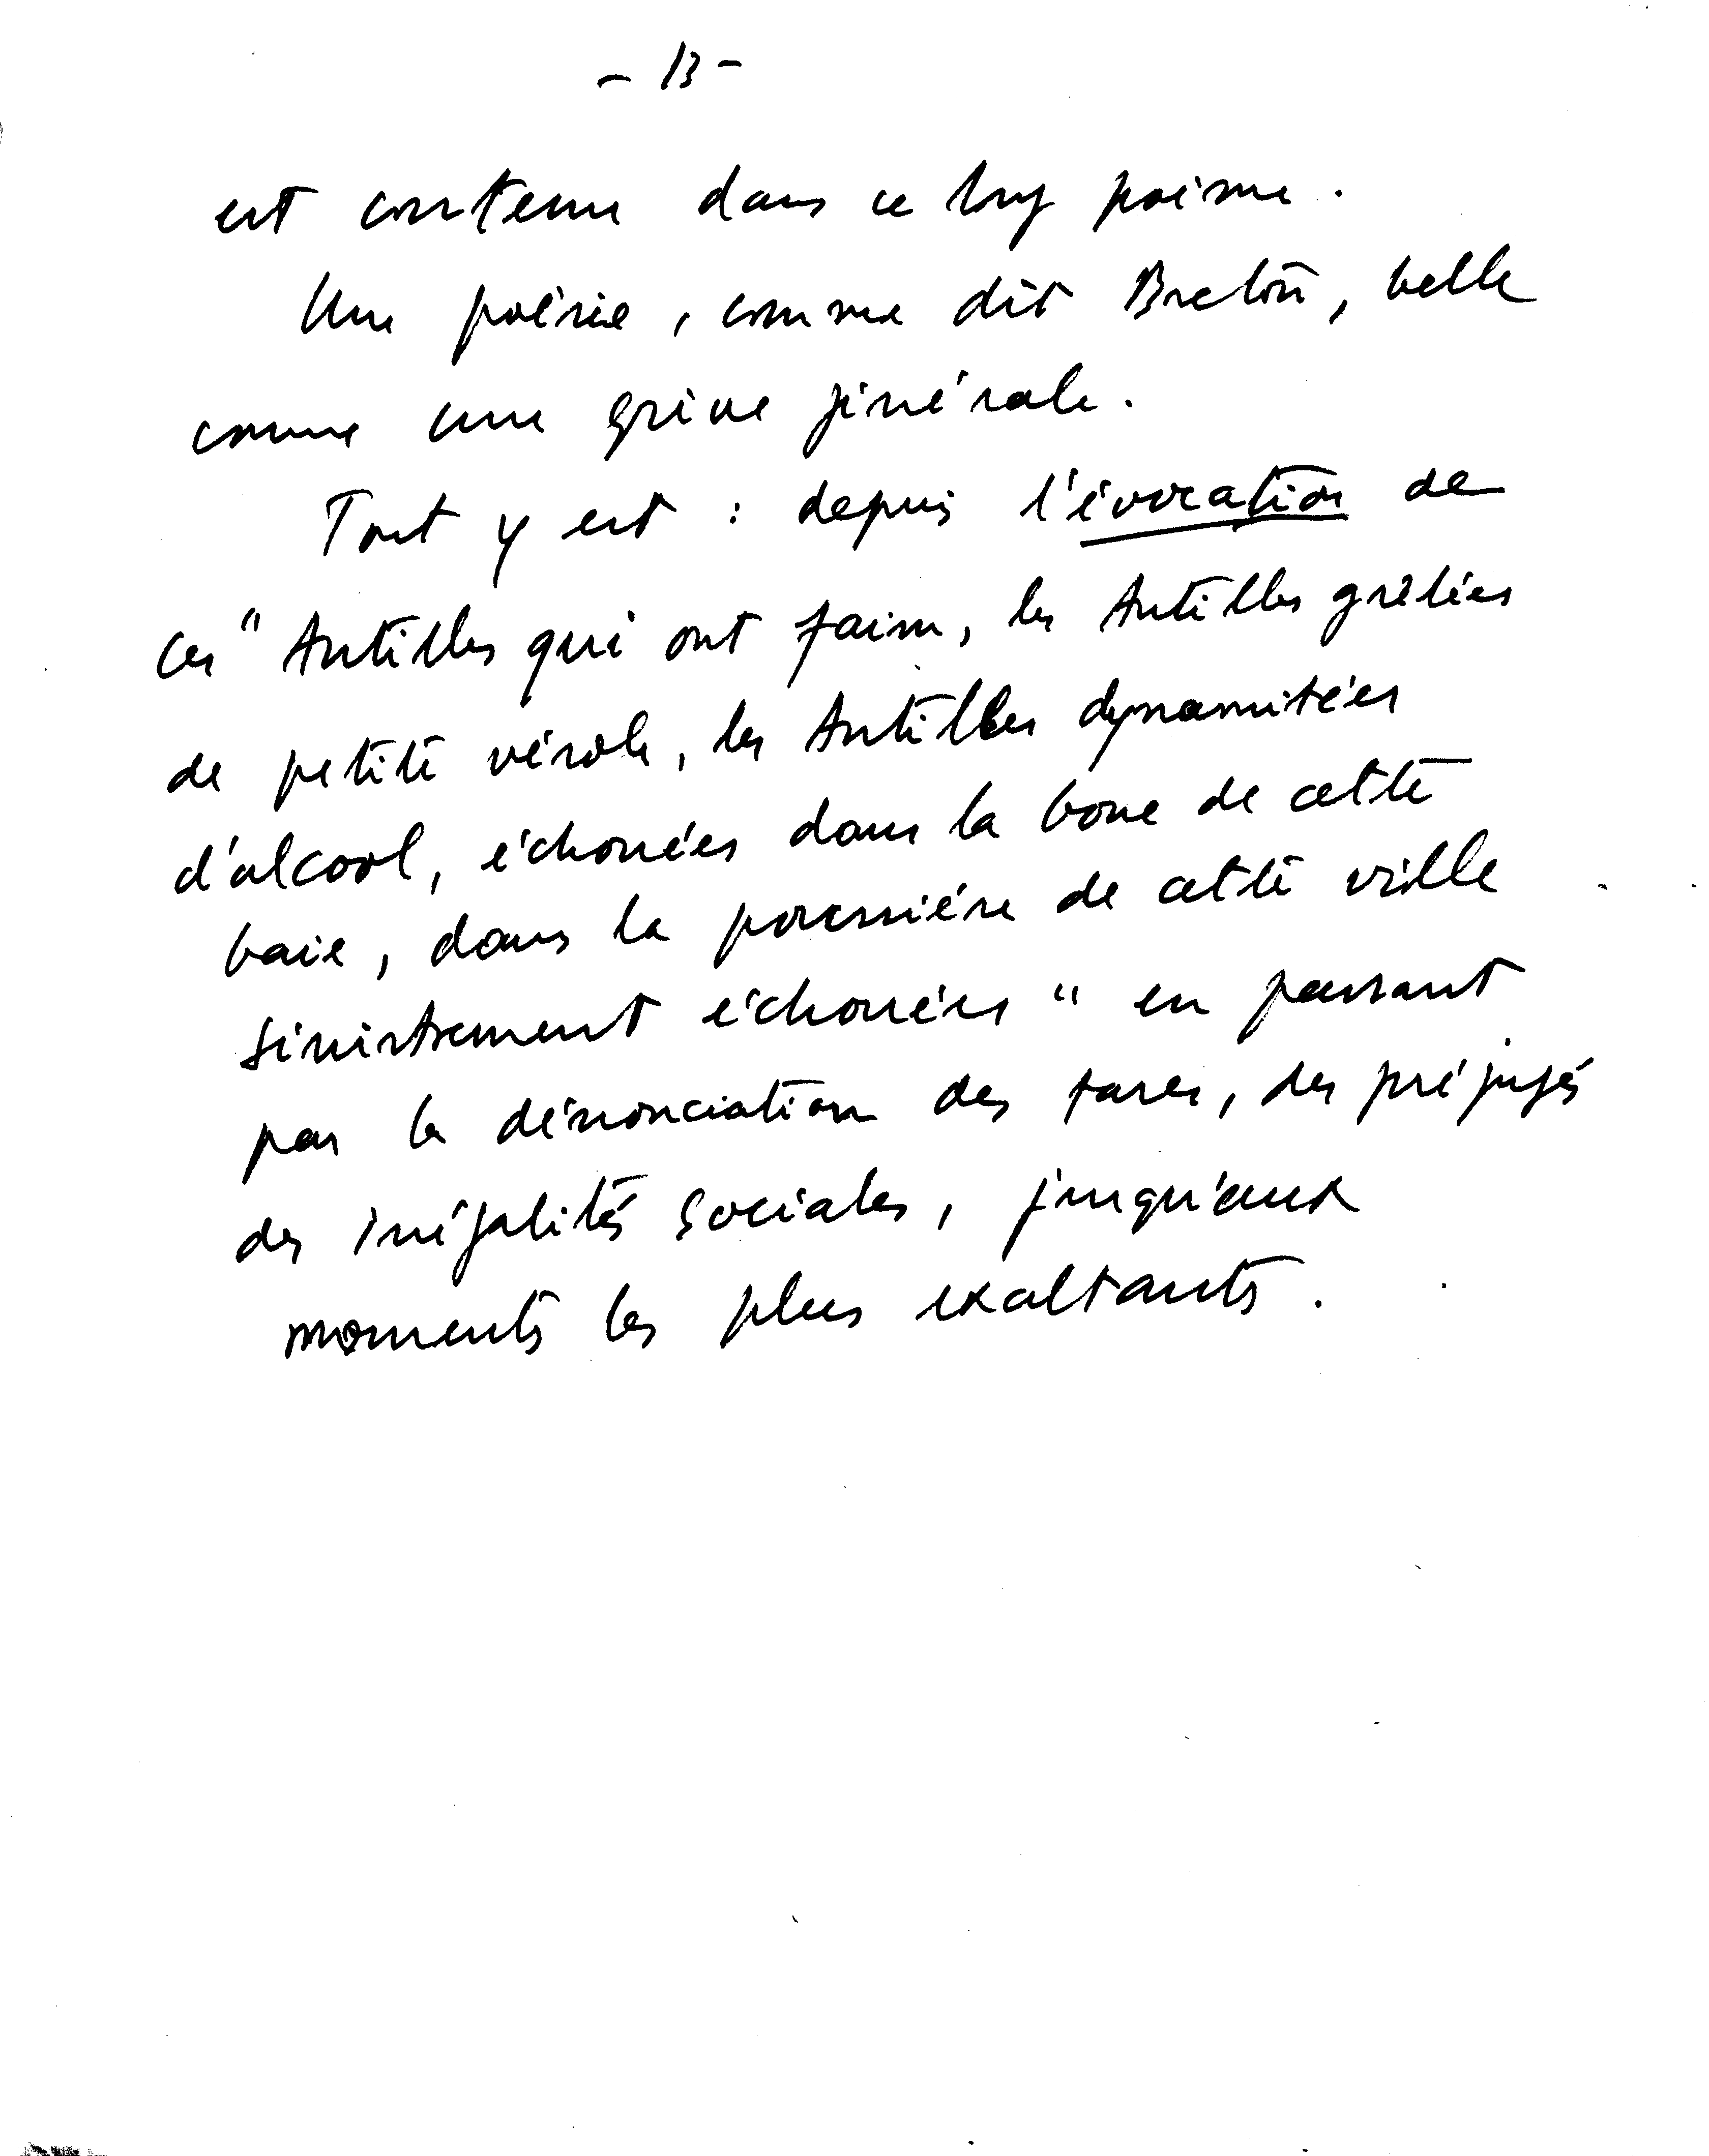 - 13 -
est contenu dans ce long poème.
Une poésie, comme dit Breton, belle
comme une grève générale.
Tout y est : depuis l'évocation de
ces "Antilles qui ont faim, les Antilles grêlées
de petite vérole, les Antilles dynamitées
d'alcool, échouées dans la boue de cette
baie, dans la poussière de cette ville
sinistrement échouées" en passant
par la dénonciation des tares, des préjugés
des inégalités sociales, jusqu'aux
moments les plus exaltants.